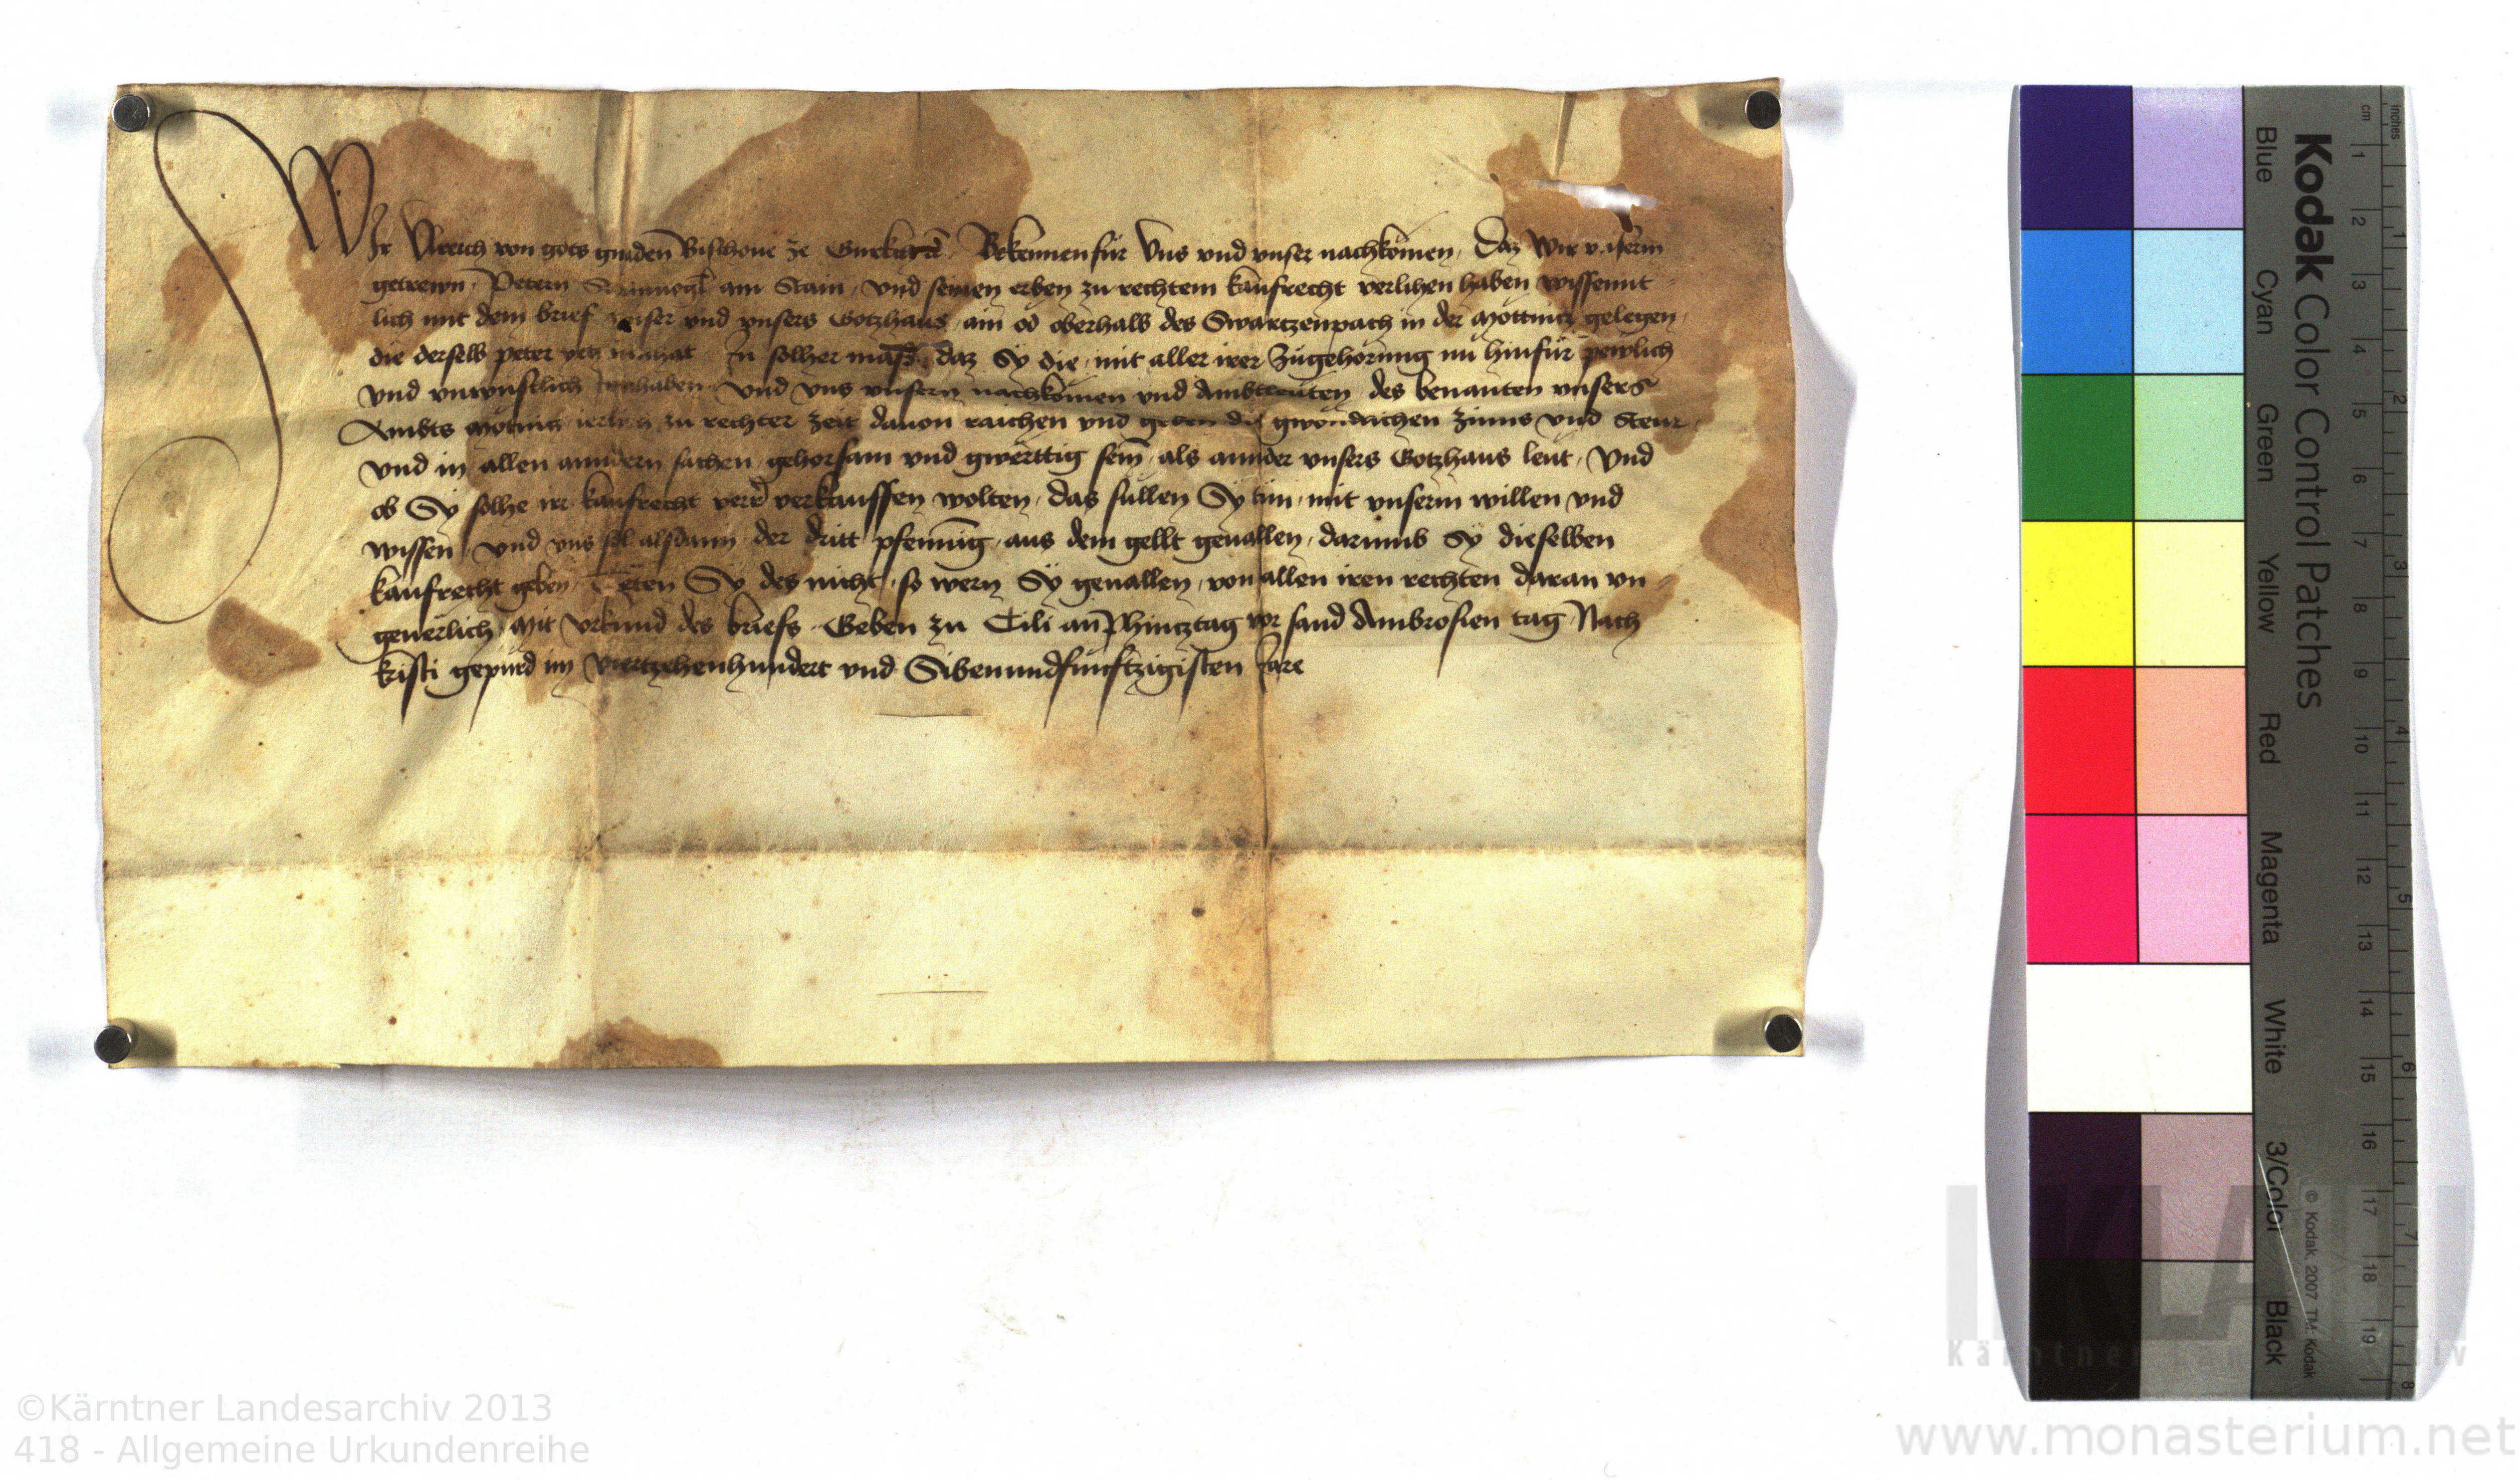 Wir Ulreich von gots gnaden Bischoue ze Gurkh Bekennen für Uns vnd vnser nachkömen, Daz Wir vnserm
getrewn, Petern am Stain, vnd seinen erben zu rechtem kaufrecht verlihen haben wissennt
lich mit dem brief vnser vnd vnsers Gotzhaus, ain öd oberhalb des Swartzenpach in der Möttnitz gelegen,
die derselb peter ytz innhat In solher mass, daz Sy die, mit aller irer Zugehörung nu hinfür pewlich
vnd vnwüstlich Innhaben Vnd vns vnsern nachkömen vnd Ambtleuten, des benanten vnsers
Ambts Mötnitz ierlich zu rechter zeit dauon raichen vnd geben die gwöndlichen zinns vnd Steur,
vnd in allen anndern sachen, gehorsam vnd gwerttig sein, als annder vnsers Gotzhaus leut, Vnd
ob Sy solhe ire kaufrecht verkauffen wolten, das sullen Sy tun, mit vnserm willen vnd
wissen, vnd vns sol alsdann der dritt pfenning, aus dem gellt geuallen, darumb Sy dieselben
kaufrecht geben, Teten Sy des nicht, so wern Sy geuallen, von allen iren rechten daran vn
geuerlich, Mit Vrkund des briefs. Geben zu Cili an Phintztag vor sand Ambrosien tag Nach
kristi gepurd im Viertzehenhundert vnd Sibenundfunftzigisten Jare
Kodak Color Control Patches
Blue Cyan Green Yellow Red Magenta White 3/Color Black
© Kodak, 2007 TM: Kodak
inches
cm
1 2 3 4 5 6 7 8 9 10 11 12 13 14 15 16 17 18 19
1 2 3 4 5 6 7 8
©Kärntner Landesarchiv 2013
418 - Allgemeine Urkundenreihe
www.monasterium.net